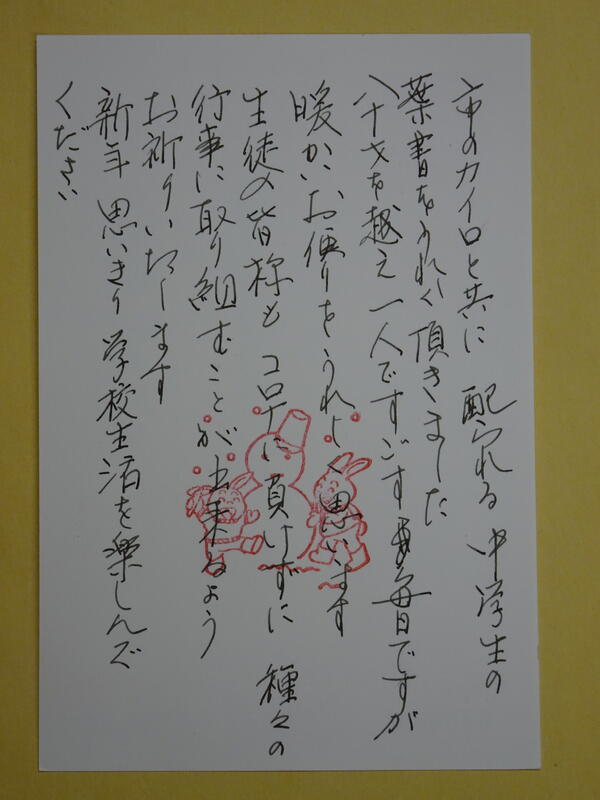 市のカイロと共に 配られる 中学生の
葉書をうれしく頂きました
八十才を越え一人ですごす毎日ですが
暖かいお便りをうれしく思います
生徒の皆様も コロナに負けずに 種々の
行事に取り組むことが出来るよう
お祈りいたします
新年 思いきり 学校生活を楽しんで
ください